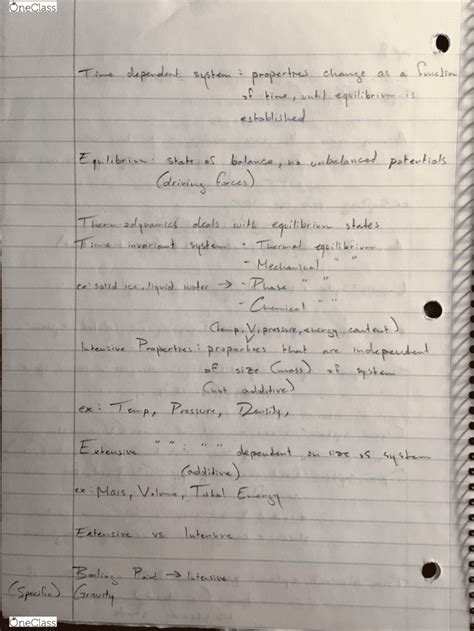 OneClass
Time dependent system : properties change as a function
of time, until equilibrium is
established
Equlibrium : state of balance, no unbalanced potentials
(driving forces)
Thermodynamics deals with equilibrium states
Time invariant system - Thermal equilibrium
- Mechanical " "
ex: solid ice, liquid water → - Phase " "
- Chemical " "
(temp, V, pressure, energy content)
Intensive Properties : properties that are independent
of size (mass) of system
(not additive)
ex: Temp, Pressure, Density,
Extensive " " : " " dependent on size of system
(additive)
ex: Mass, Volume, Total Energy
Extensive vs Intensive
Boiling Point → Intensive
(Specific) Gravity
OneClass